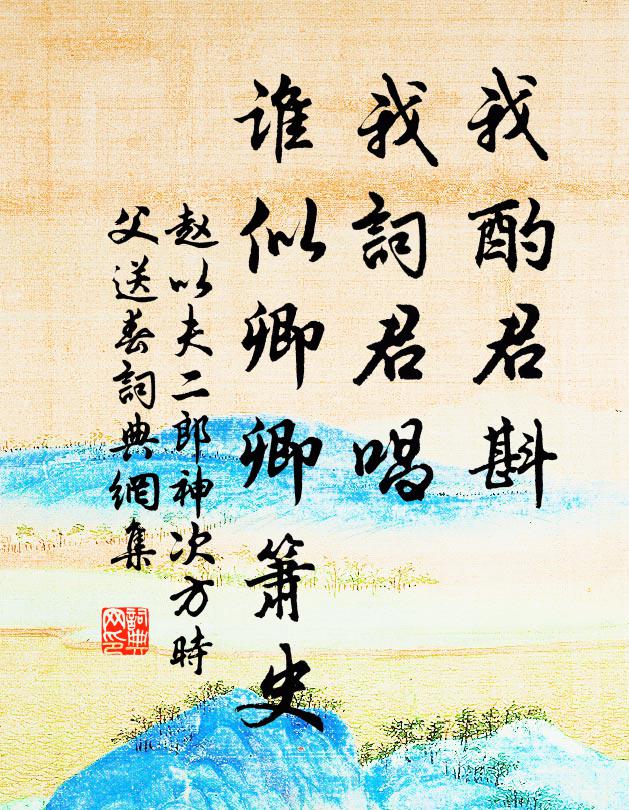 我酌君斟
我詞君唱
谁似卿卿箫史
赵以夫二郎神次方時
父送春詞典網集
詞典网印